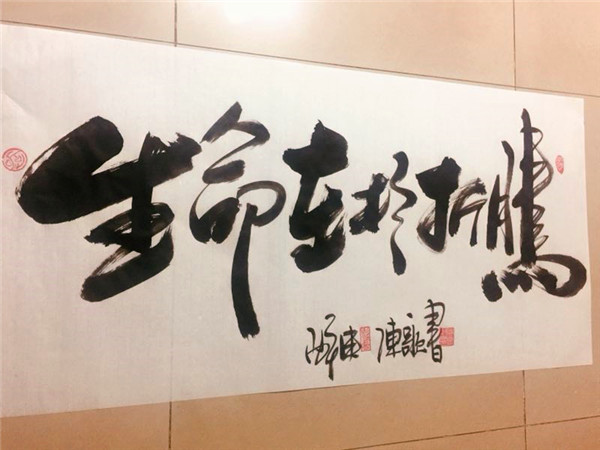 生命在於折騰
陳謳書